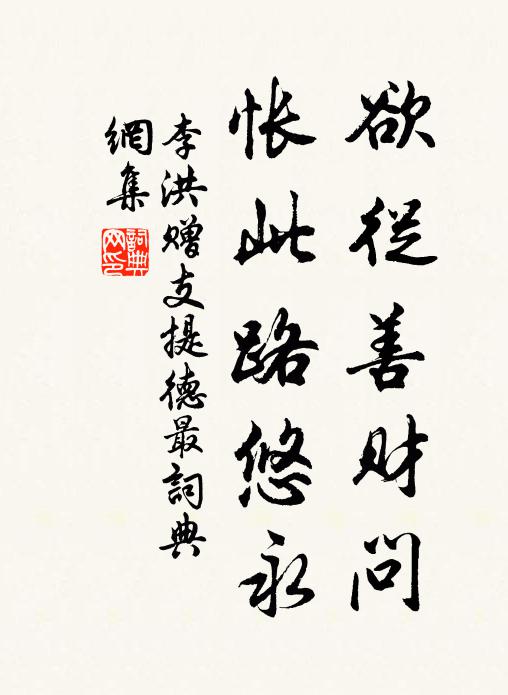 欲従善财问
怅此路悠永
李洪赠支提德最詞典
網集
詞典
网印